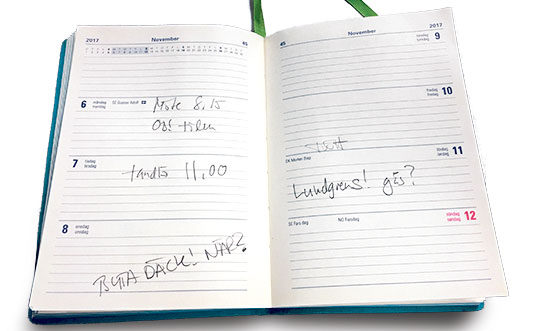 2017 November 45
6 måndag mandag SE Gustav Adolf
Möte 8.15
Obs! tiden
7 tisdag tirsdag
tandläk 11,00
8 onsdag onsdag
BYTA DÄCK! NÄR?
45 November 2017
torsdag torsdag 9
fredag fredag 10
DK Morten Bisp
lördag lørdag 11
Lundgrens! gås?
SE Fars dag NO Farsdag
söndag søndag 12